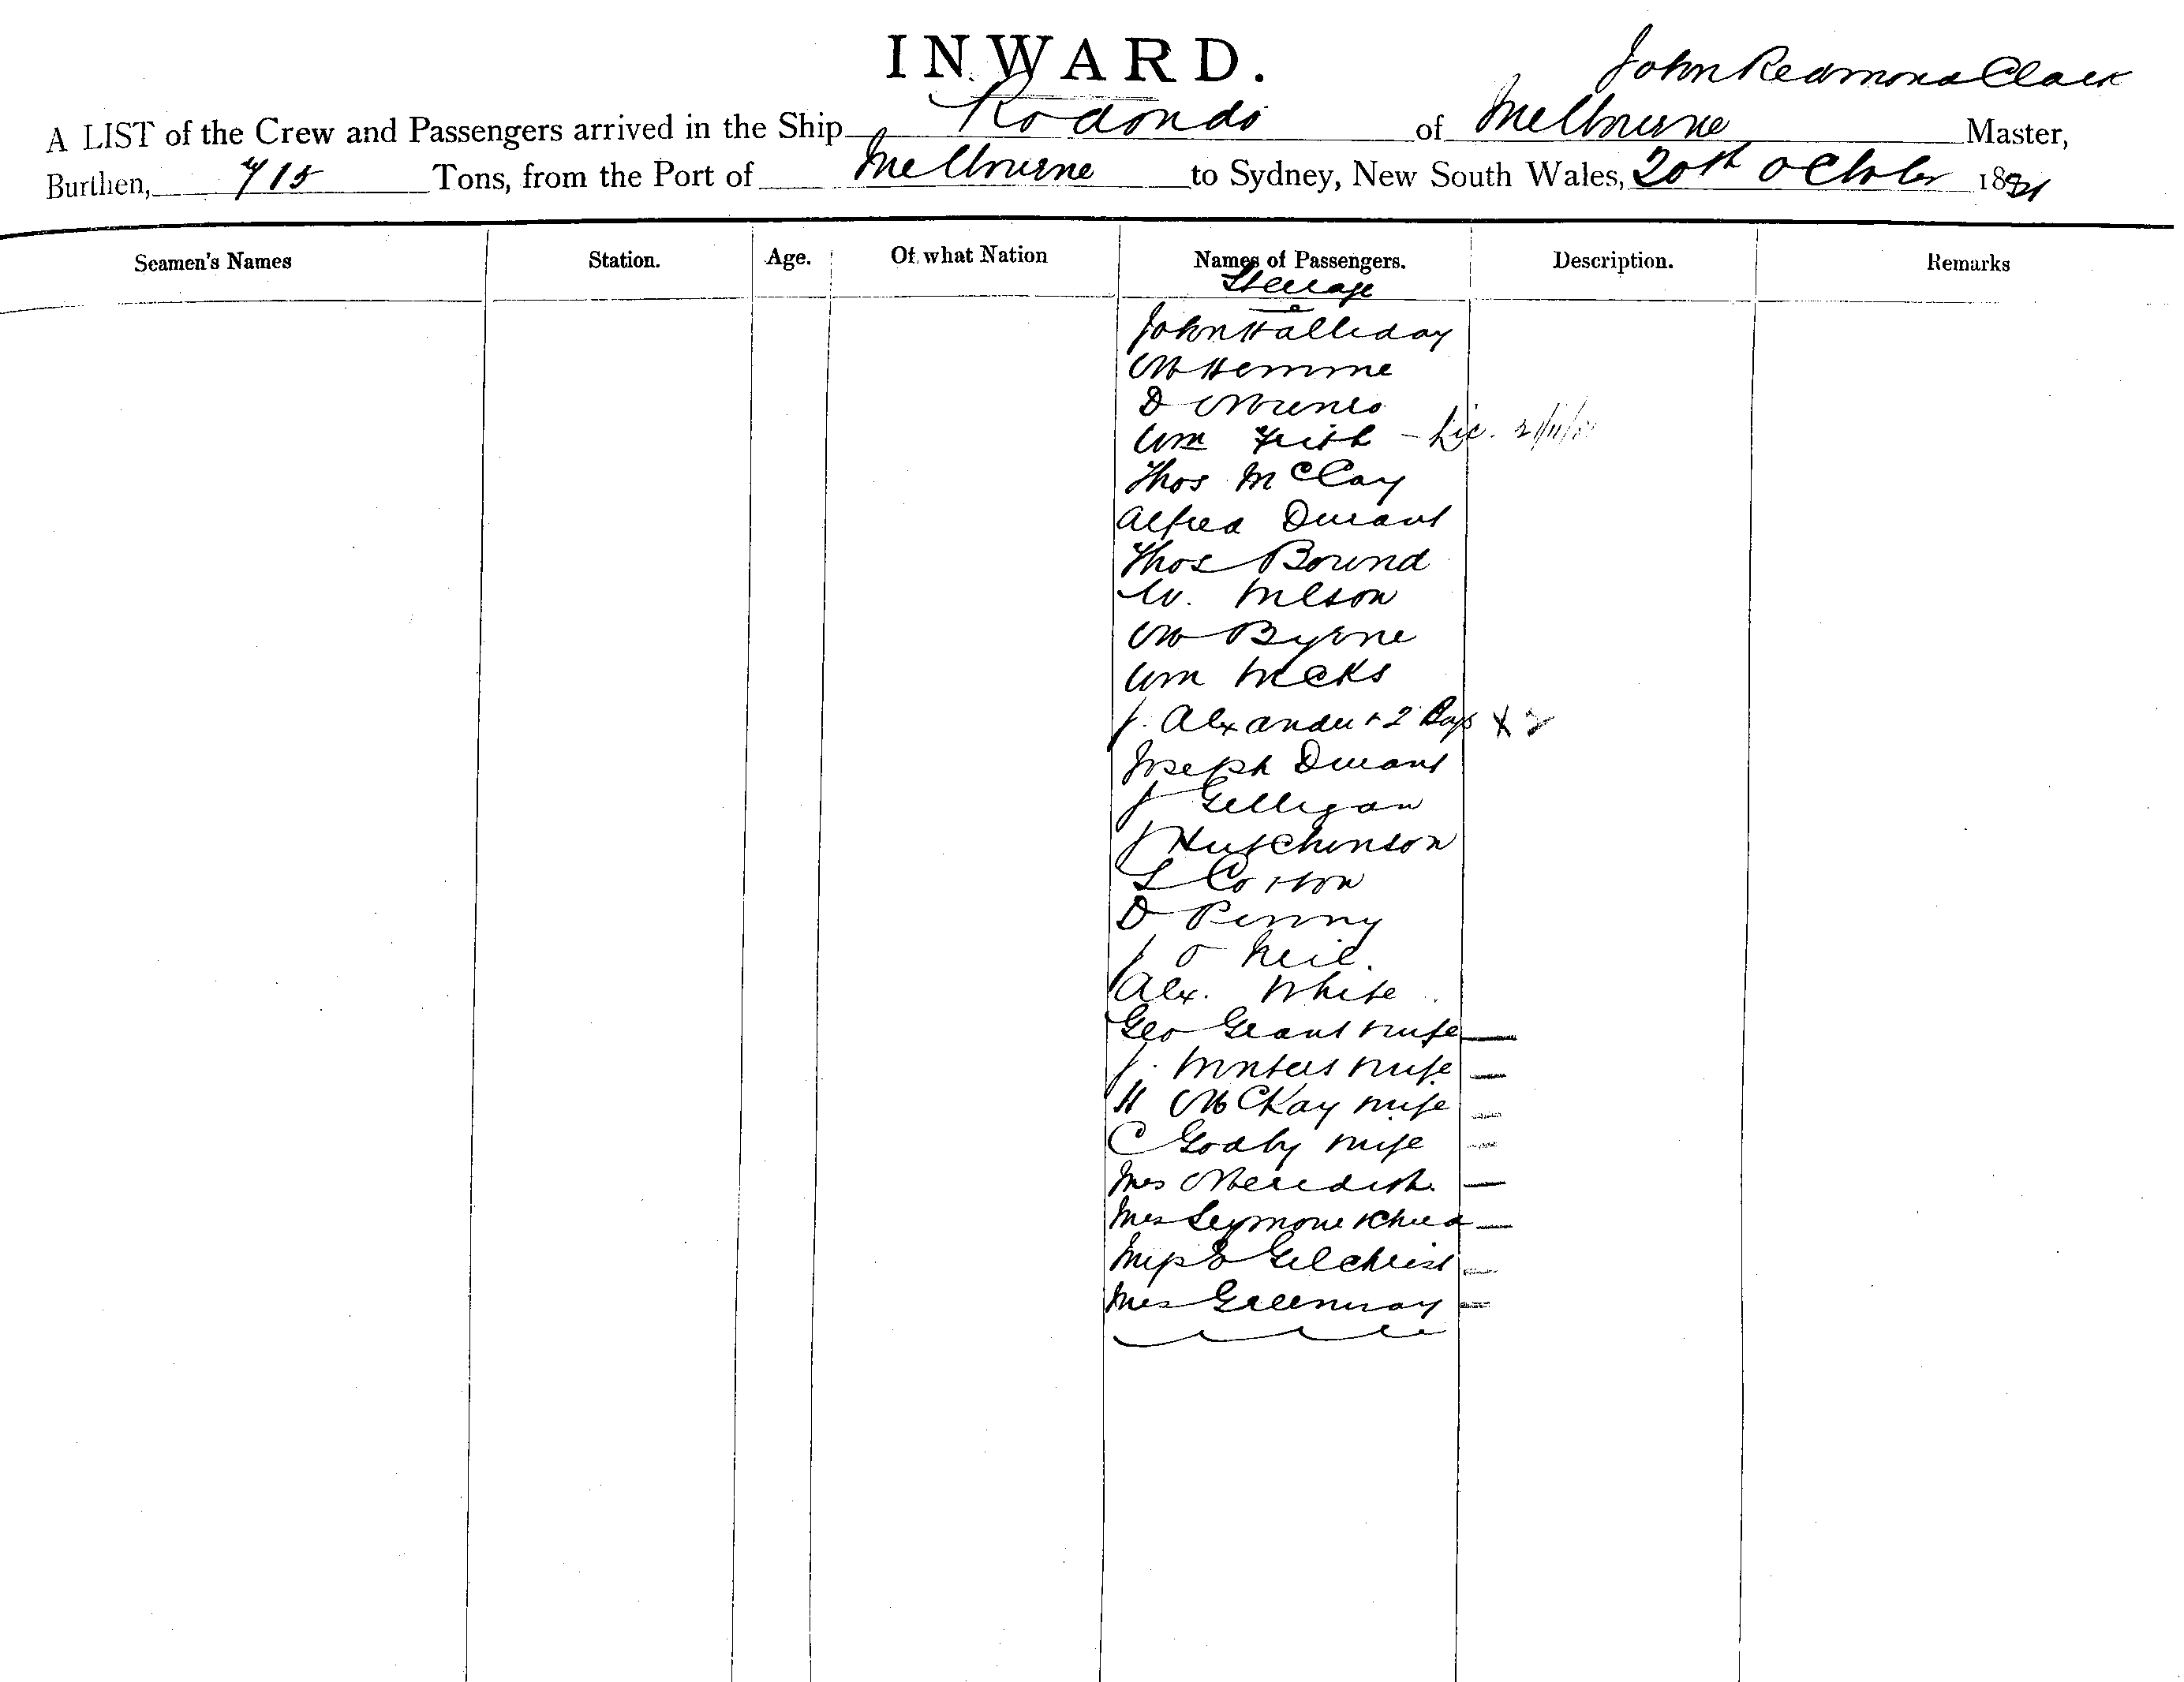 INWARD.
John Redmond Clark
A LIST of the Crew and Passengers arrived in the Ship Rodondo of Melbourne Master,
Burthen, 715 Tons, from the Port of Melbourne to Sydney, New South Wales, 20th October 1881
Seamen's Names Station. Age. Of what Nation Names of Passengers. Description. Remarks
Steerage
John Halliday
M Hemme
D Munro
Wm Frith - Lic.
Thos McClay
Alfred Durant
Thos Bound
W. Wilson
M Byrne
Wm Weeks
J. Alexander & 2 Boys X 2
Joseph Durant
J Gilligan
J Hutchinson
S
D Penny
J O Neil.
Alex. White
Geo Grant & wife
J. Winters & wife
H McKay & wife
C Godby & wife
Mrs Meredith
Mrs Seymour & Child
Miss Gilchrist
Mrs Greenway